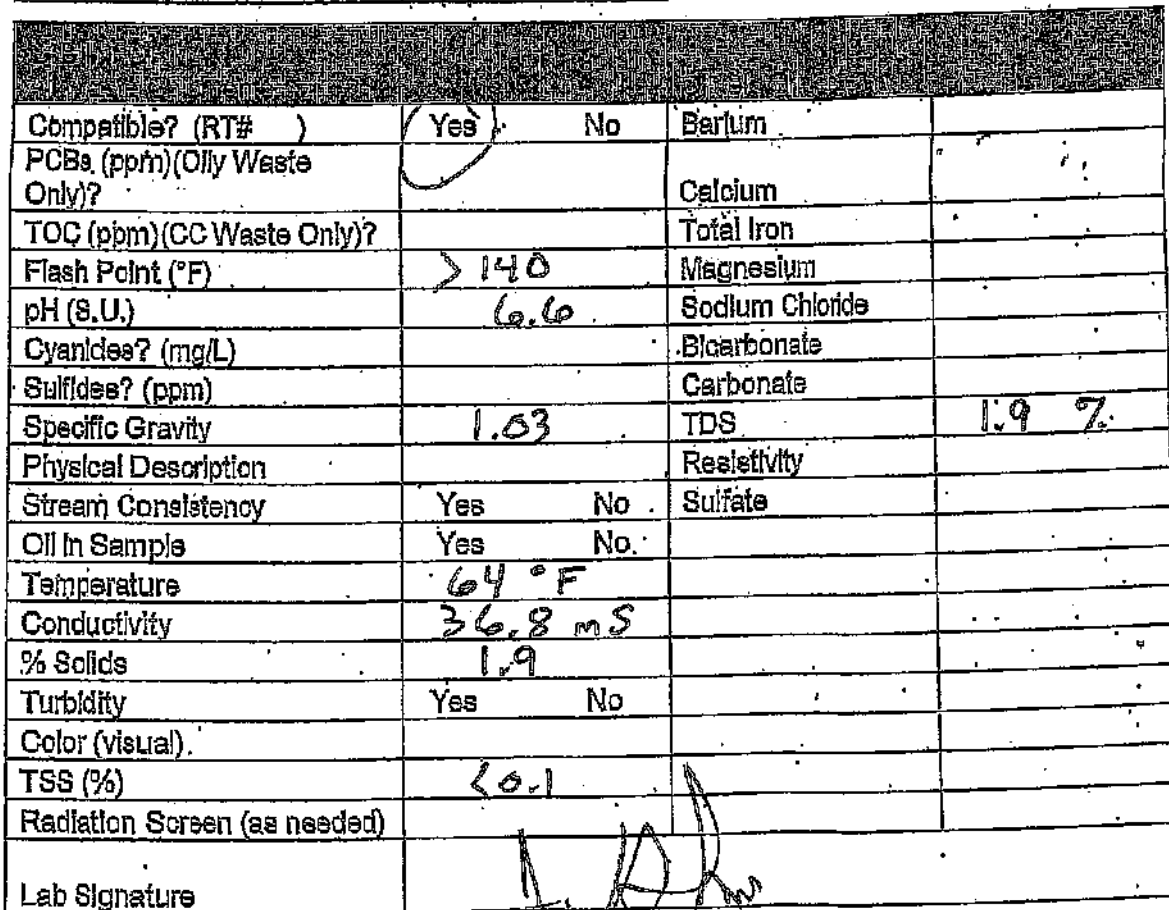 Compatible? (RT# ) Yes No Barium
PCBs (ppm)(Oily Waste
Only)? Calcium
TOC (ppm)(CC Waste Only)? Total Iron
Flash Point (°F) >140 Magnesium
pH (S.U.) 6.6 Sodium Chloride
Cyanides? (mg/L) Bicarbonate
Sulfides? (ppm) Carbonate
Specific Gravity 1.03 TDS 1.9 %
Physical Description Resistivity
Stream Consistency Yes No Sulfate
Oil in Sample Yes No
Temperature 64 °F
Conductivity 36.8 mS
% Solids 1.9
Turbidity Yes No
Color (visual)
TSS (%) <0.1
Radiation Screen (as needed)
Lab Signature